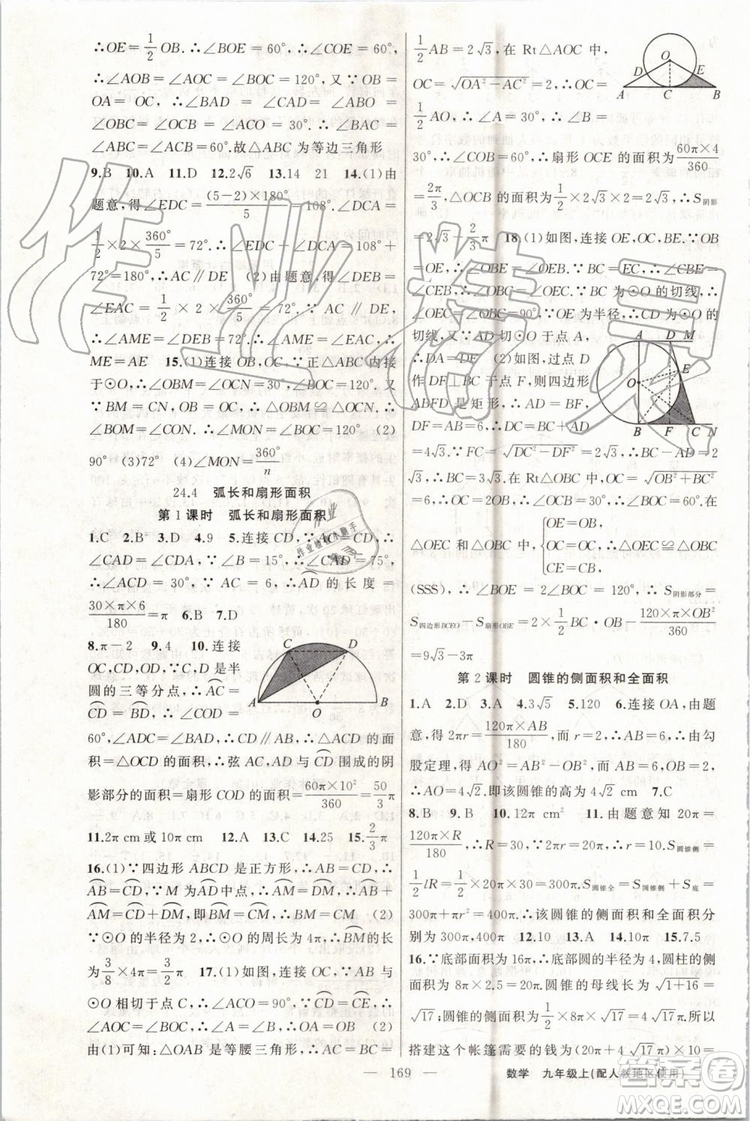 ∴OE=1/2OB. ∴∠BOE=60°. ∴∠COE=60°.
∴∠AOB=∠AOC=∠BOC=120°. 又∵OB=
OC=OA, ∴∠BAD=∠CAD=∠ABO=
∠OBC=∠OCB=30°. ∴∠BAC=∠ABC=
∠BCA=60°. 故△ABC为等边三角形
9.B 10.A 11.D 12.2√6 13.14 21 14.(1)由
题意,得∠EDC=(5-2)×180°/5=108°. ∠DCA=
1/2×2×360°/5=72°. ∴∠EDC+∠DCA=108°+
72°=180°, ∴AC∥DE (2)由题意,得∠DEB=
∠EAC=1/2×2×360°/5=72°. ∵AC∥DE,
∴∠AME=∠DEB=72°. ∴∠EAC=∠AME.
∴ME=AE 15.(1)连接OB、OC. ∵正△ABC内接
于⊙O, ∴∠OBM=∠OCN=30°, ∠BOC=120°.
又∵BM=CN, OB=OC, ∴△OBM≌△OCN.
∴∠BOM=∠CON. ∴∠MON=∠BOC=120° (2)
90° (3)72° (4)∠MON=360°/n
24.4 弧长和扇形面积
第1课时 弧长和扇形面积
1.C 2.B 3.D 4.9 5.连接OA、OC. ∵∠D=30°,
∴∠AOC=60°. ∴AC的长度=
30×π×6/180=π 6.B 7.D
8.π-2 9.A 10.连接
OC、OD、CD. ∵C、D是半
圆的三等分点, ∴AC=
CD=BD. ∴∠COD=
60°, ∠ADC=∠BAD. ∴CD∥AB. ∴△ACD的面积
=△OCD的面积. ∴弦AC、AD和CD围成的阴
影部分的面积=扇形COD的面积=60π×10²/360=50π/3
11.2π cm或10π cm 12.C 13.C 14.25 15.2/3π
16.(1)∵四边形ABCD是正方形, ∴AB=CD, ∴
AB=CD. ∵M为AD的中点, ∴AM=DM. ∴
AB+AM=CD+DM, 即BM=CM. ∴BM=CM (2)
∵⊙O的半径为2, ∴⊙O的周长为4π, ∴BM的长=
3/8×4π=3/2π 17.(1)如图,连接OC, ∵AB与⊙O
相切于点C, ∴∠ACO=90°. ∵OA=OB, ∴AC=
1/2AB=2√3, 在Rt△AOC中,
OC=√(OA²-AC²)=2. ∴OC=
1/2AO, ∴∠A=30°, ∴∠COB=
60°, ∴∠COB=60°. ∴扇形OCE的面积为60π×4/360=
2π/3, △OCB的面积为1/2×2√3×2=2√3, ∴S阴影
=2√3-2/3π 18.(1)如图,连接OE、OC、BE.
∵OB=OE, ∴∠OBE=∠OEB. ∵BC=EC, ∴∠CBE=
∠CEB. ∴∠OBC=∠OEC. ∵BC为⊙O的切线,
∴∠OEC=∠OBC=90°. ∵OE为半径, ∴CD为⊙O的
切线. ∵AD切⊙O于点A,
∴DA=DE (2)如图,过点D
作DF⊥BC于点F,则四边形
ABFD是矩形, ∴AD=BF,
DF=AB=6. ∴DC=BC+AD
=4√3. ∵FC=√(DC²-DF²)=2√3, ∴BC-AD=
2√3. ∴BC=3√3. 在Rt△OBC中, OC=√(OB²+BC²)=
6. ∵OB=3, ∴∠OCB=30°. ∴∠BOC=60°. 在
△OEC和△OBC中, {OE=OB, OC=OC, CE=CB, ∴△OEC≌△OBC
(SSS), ∴∠BOE=2∠BOC=120°, ∴S阴影部分=
S四边形BCEO-S扇形OBE=2×1/2BC·OB-120×π×OB²/360
=9√3-3π
第2课时 圆锥的侧面积和全面积
1.A 2.D 3.A 4.2√5 5.120 6.连接OA, 由题
意,得2πr=120π×AB/180, ∴r=AB/3=2. ∴AB=6. 由勾
股定理,得AO²=AB²-r²=6²-2²=32.
∴AO=4√2. ∴该圆锥的高为4√2 7.C
8.B 9.B 10.12π cm² 11.由题意知20π=
120π×R/180, ∴R=30, ∵2πr=20π, ∴r=10, ∴S圆锥侧=
1/2lR=1/2×20π×30=300π. S圆锥全=S圆锥侧+S底=
300π+π×10²=400π. ∴该圆锥的侧面积和全面积分
别为300π、400π 12.10 13.A 14.A 15.7.5
16.∵底部面积为16π, ∴底部半径为4. ∴底部的侧面
积为8π×2.5=20π. ∵圆锥的母线长为√(1+16)=
√17, ∴圆锥的侧面积为1/2×8π×√17=4√17π, ∴
搭建这个帐篷需要的篷布的面积为(20+4√17)π
169
数学 九年级上(配人教地区使用)